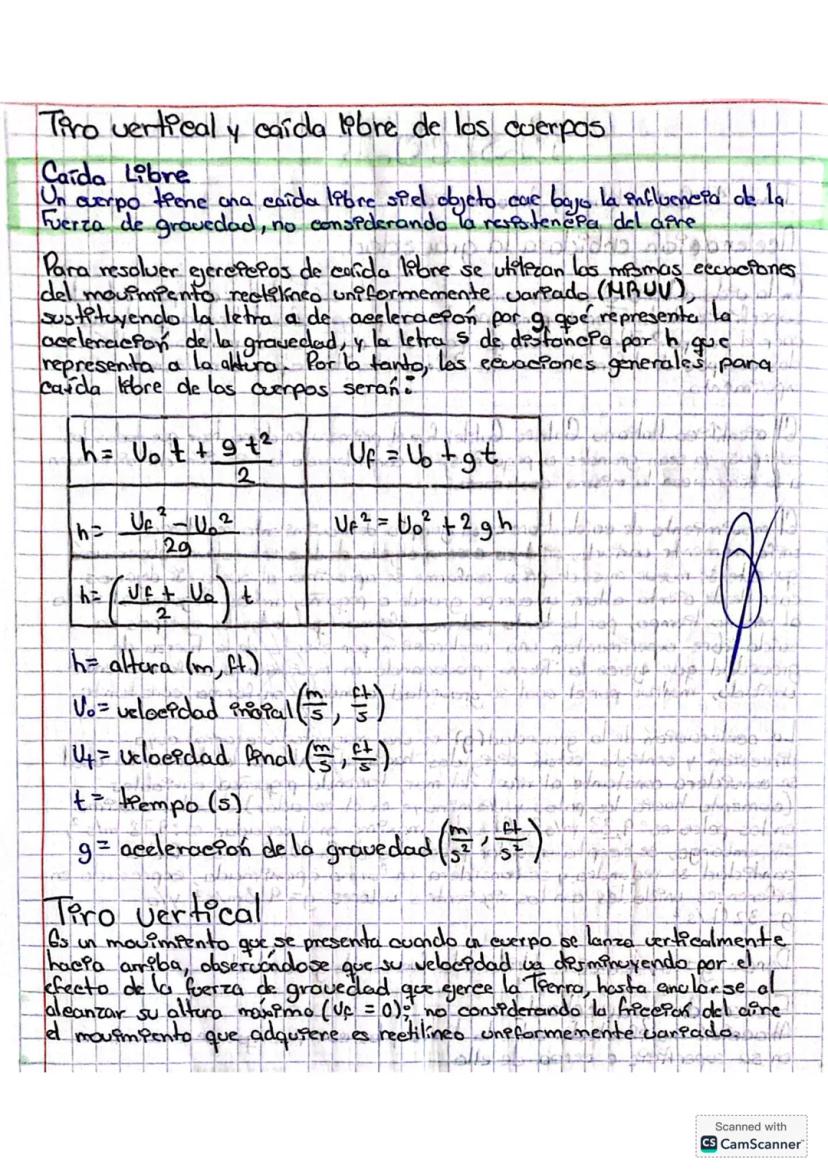 Tiro vertical y caída libre de los cuerpos
Caída Libre
Un cuerpo tiene una caída libre si el objeto cae bajo la influencia de la
Fuerza de gravedad, no considerando la resistencia del aire
Para resolver ejercicios de caída libre se utilizan las mismas ecuaciones
del movimiento rectilíneo uniformemente variado (MRUV),
sustituyendo la letra a de aceleración por g, que representa la
aceleración de la gravedad, y la letra s de distancia por h, que
representa a la altura. Por lo tanto, las ecuaciones generales, para
caída libre de los cuerpos serán:
h = V₀ t + g t²/2
Vf = V₀ + g t
h = (Vf² - V₀²)/2g
Vf² = V₀² + 2 g h
h = ((Vf + V₀)/2) t
h = altura (m, ft)
V₀ = velocidad inicial (m/s, ft/s)
Vf = velocidad final (m/s, ft/s)
t = tiempo (s)
g = aceleración de la gravedad (m/s², ft/s²)
Tiro vertical
Es un movimiento que se presenta cuando un cuerpo se lanza verticalmente
hacia arriba, observándose que su velocidad va disminuyendo por el
efecto de la fuerza de gravedad que ejerce la Tierra, hasta anularse al
alcanzar su altura máxima (Vf = 0); no considerando la fricción del aire
el movimiento que adquiere es rectilíneo uniformemente variado.
Scanned with
CS CamScanner